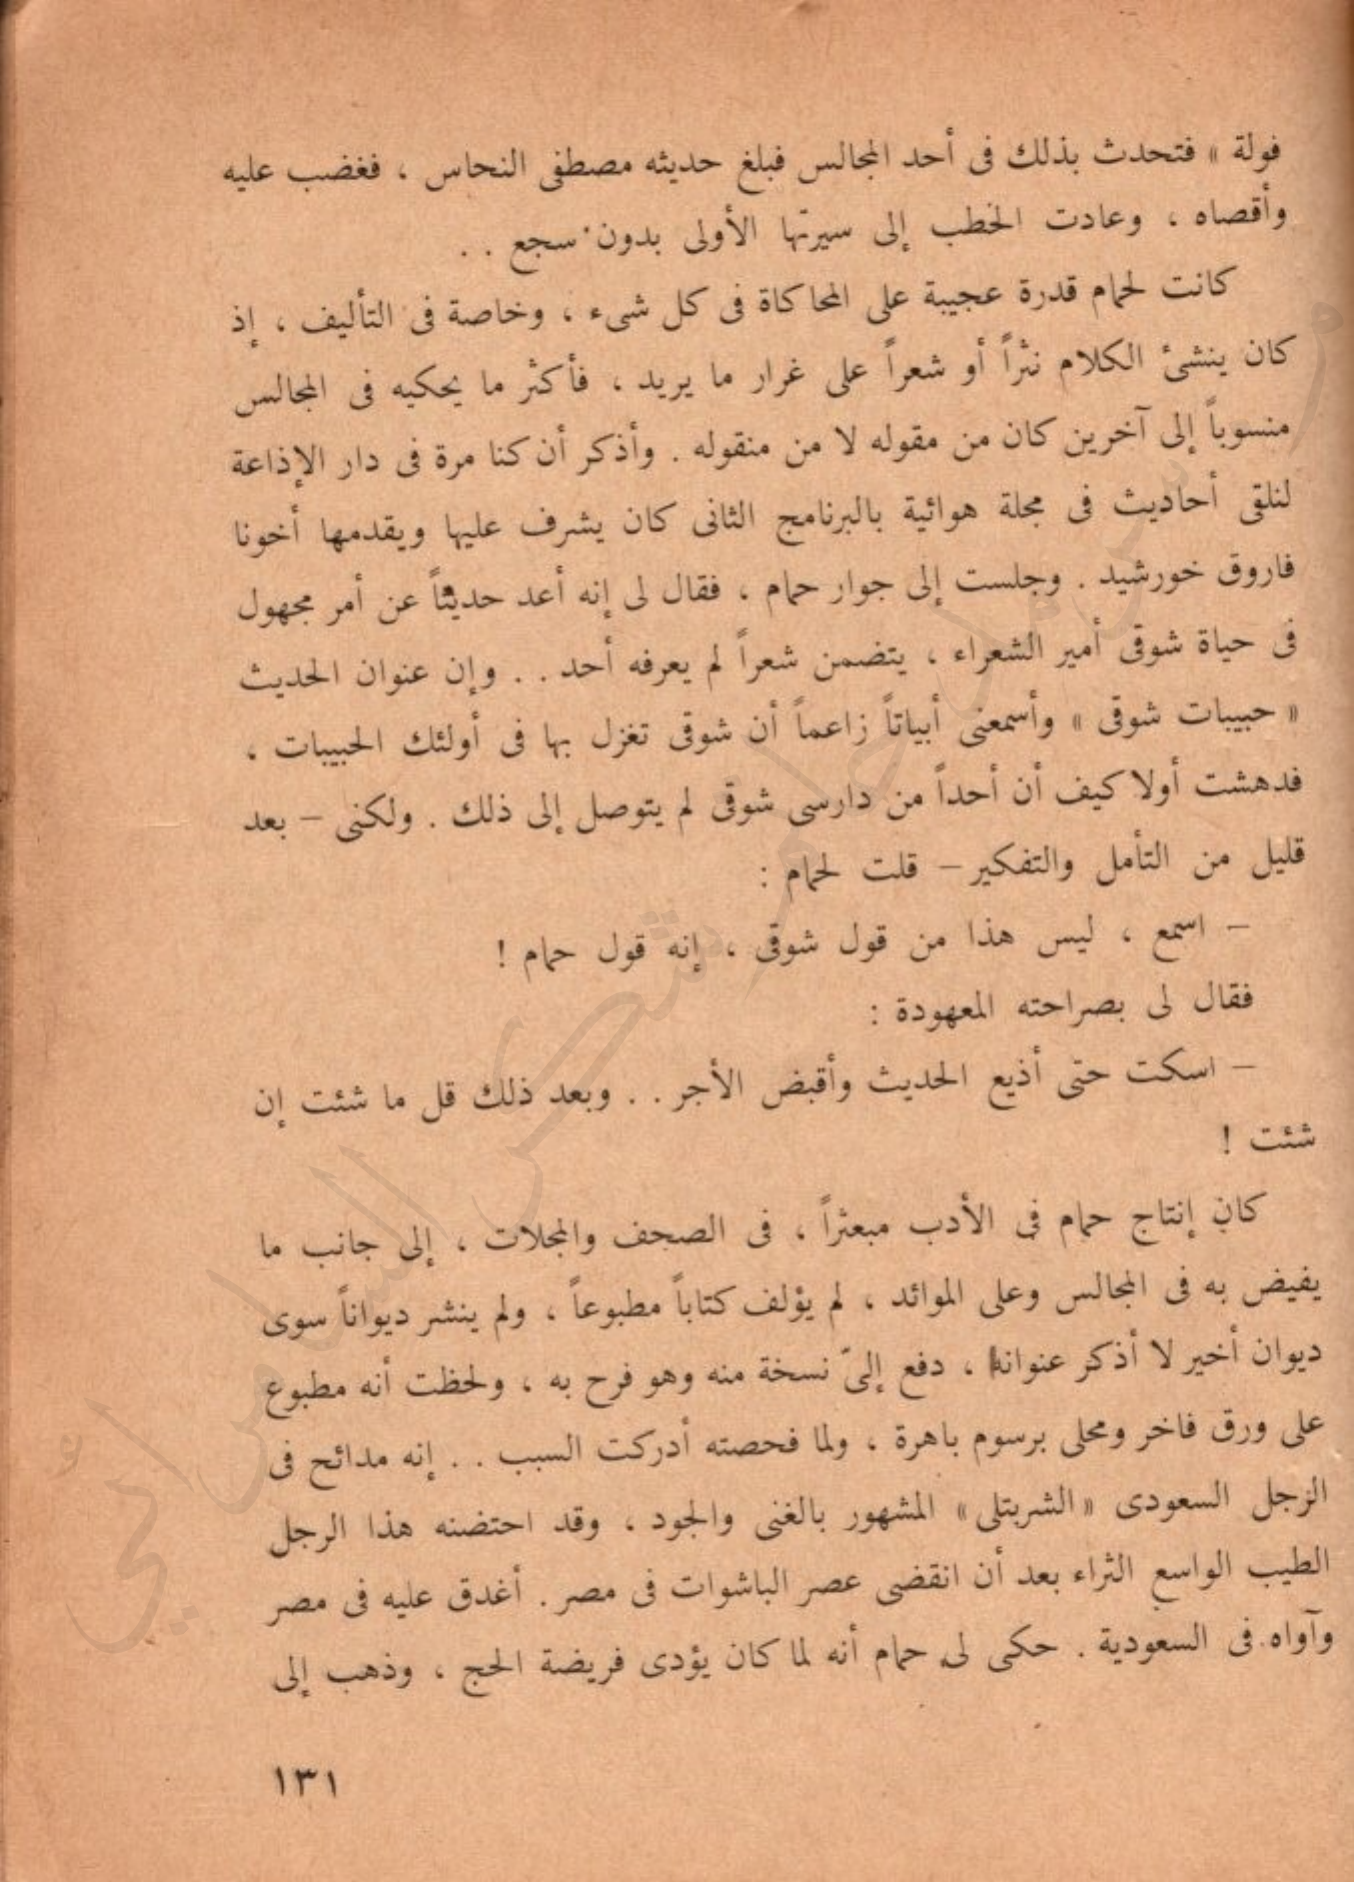 فولة » فتحدث بذلك فى أحد المجالس فبلغ حديثه مصطفى النحاس ، فغضب عليه
وأقصاه ، وعادت الخطب إلى سيرتها الأولى بدون سجع . .
كانت لحمام قدرة عجيبة على المحاكاة فى كل شىء ، وخاصة فى التأليف ، إذ
كان ينشئ الكلام نثراً أو شعراً على غرار ما يريد ، فأكثر ما يحكيه فى المجالس
منسوباً إلى آخرين كان من مقوله لا من منقوله . وأذكر أن كنا مرة فى دار الإذاعة
لنلقى أحاديث فى مجلة هوائية بالبرنامج الثانى كان يشرف عليها ويقدمها أخونا
فاروق خورشيد . وجلست إلى جوار حمام ، فقال لى إنه أعد حديثاً عن أمر مجهول
فى حياة شوقى أمير الشعراء ، يتضمن شعراً لم يعرفه أحد . . وإن عنوان الحديث
« حبيبات شوقى » وأسمعنى أبياتاً زاعماً أن شوقى تغزل بها فى أولئك الحبيبات ،
فدهشت أولا كيف أن أحداً من دارسى شوقى لم يتوصل إلى ذلك . ولكنى – بعد
قليل من التأمل والتفكير – قلت لحمام :
– اسمع ، ليس هذا من قول شوقى ، إنه قول حمام !
فقال لى بصراحته المعهودة :
– اسكت حتى أذيع الحديث وأقبض الأجر . . وبعد ذلك قل ما شئت إن
شئت !
كان إنتاج حمام فى الأدب مبعثراً ، فى الصحف والمجلات ، إلى جانب ما
يفيض به فى المجالس وعلى الموائد ، لم يؤلف كتاباً مطبوعاً ، ولم ينشر ديواناً سوى
ديوان أخير لا أذكر عنوانه ، دفع إلىّ نسخة منه وهو فرح به ، ولحظت أنه مطبوع
على ورق فاخر ومحلى برسوم باهرة ، ولما فحصته أدركت السبب . . إنه مدائح فى
الرجل السعودى « الشربتلى » المشهور بالغنى والجود ، وقد احتضنه هذا الرجل
الطيب الواسع الثراء بعد أن انقضى عصر الباشوات فى مصر . أغدق عليه فى مصر
وآواه فى السعودية . حكى لى حمام أنه لما كان يؤدى فريضة الحج ، وذهب إلى
١٣١